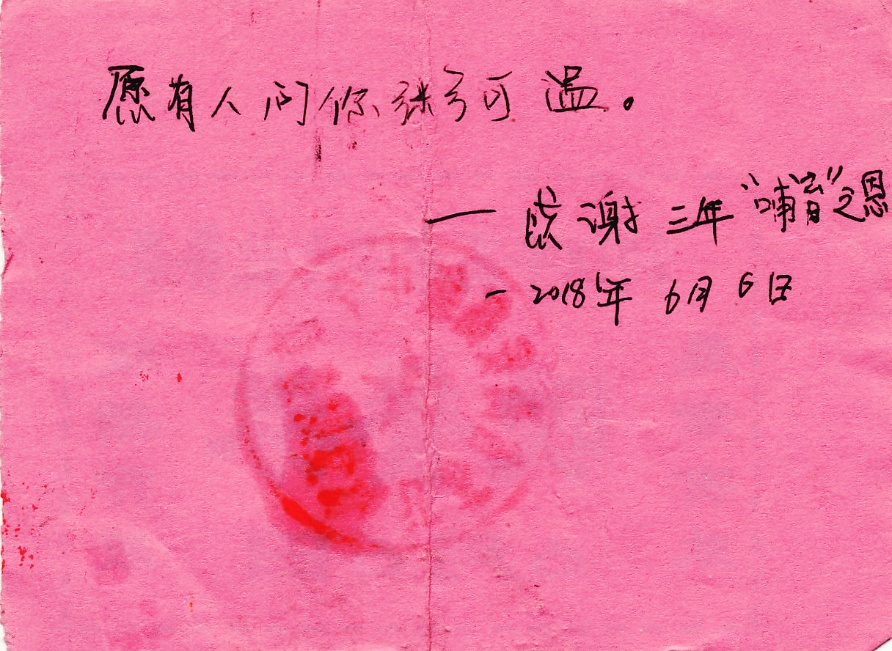 愿有人问你粥可温。
— 感谢三年“哺育”之恩
- 2018年 6月 6日